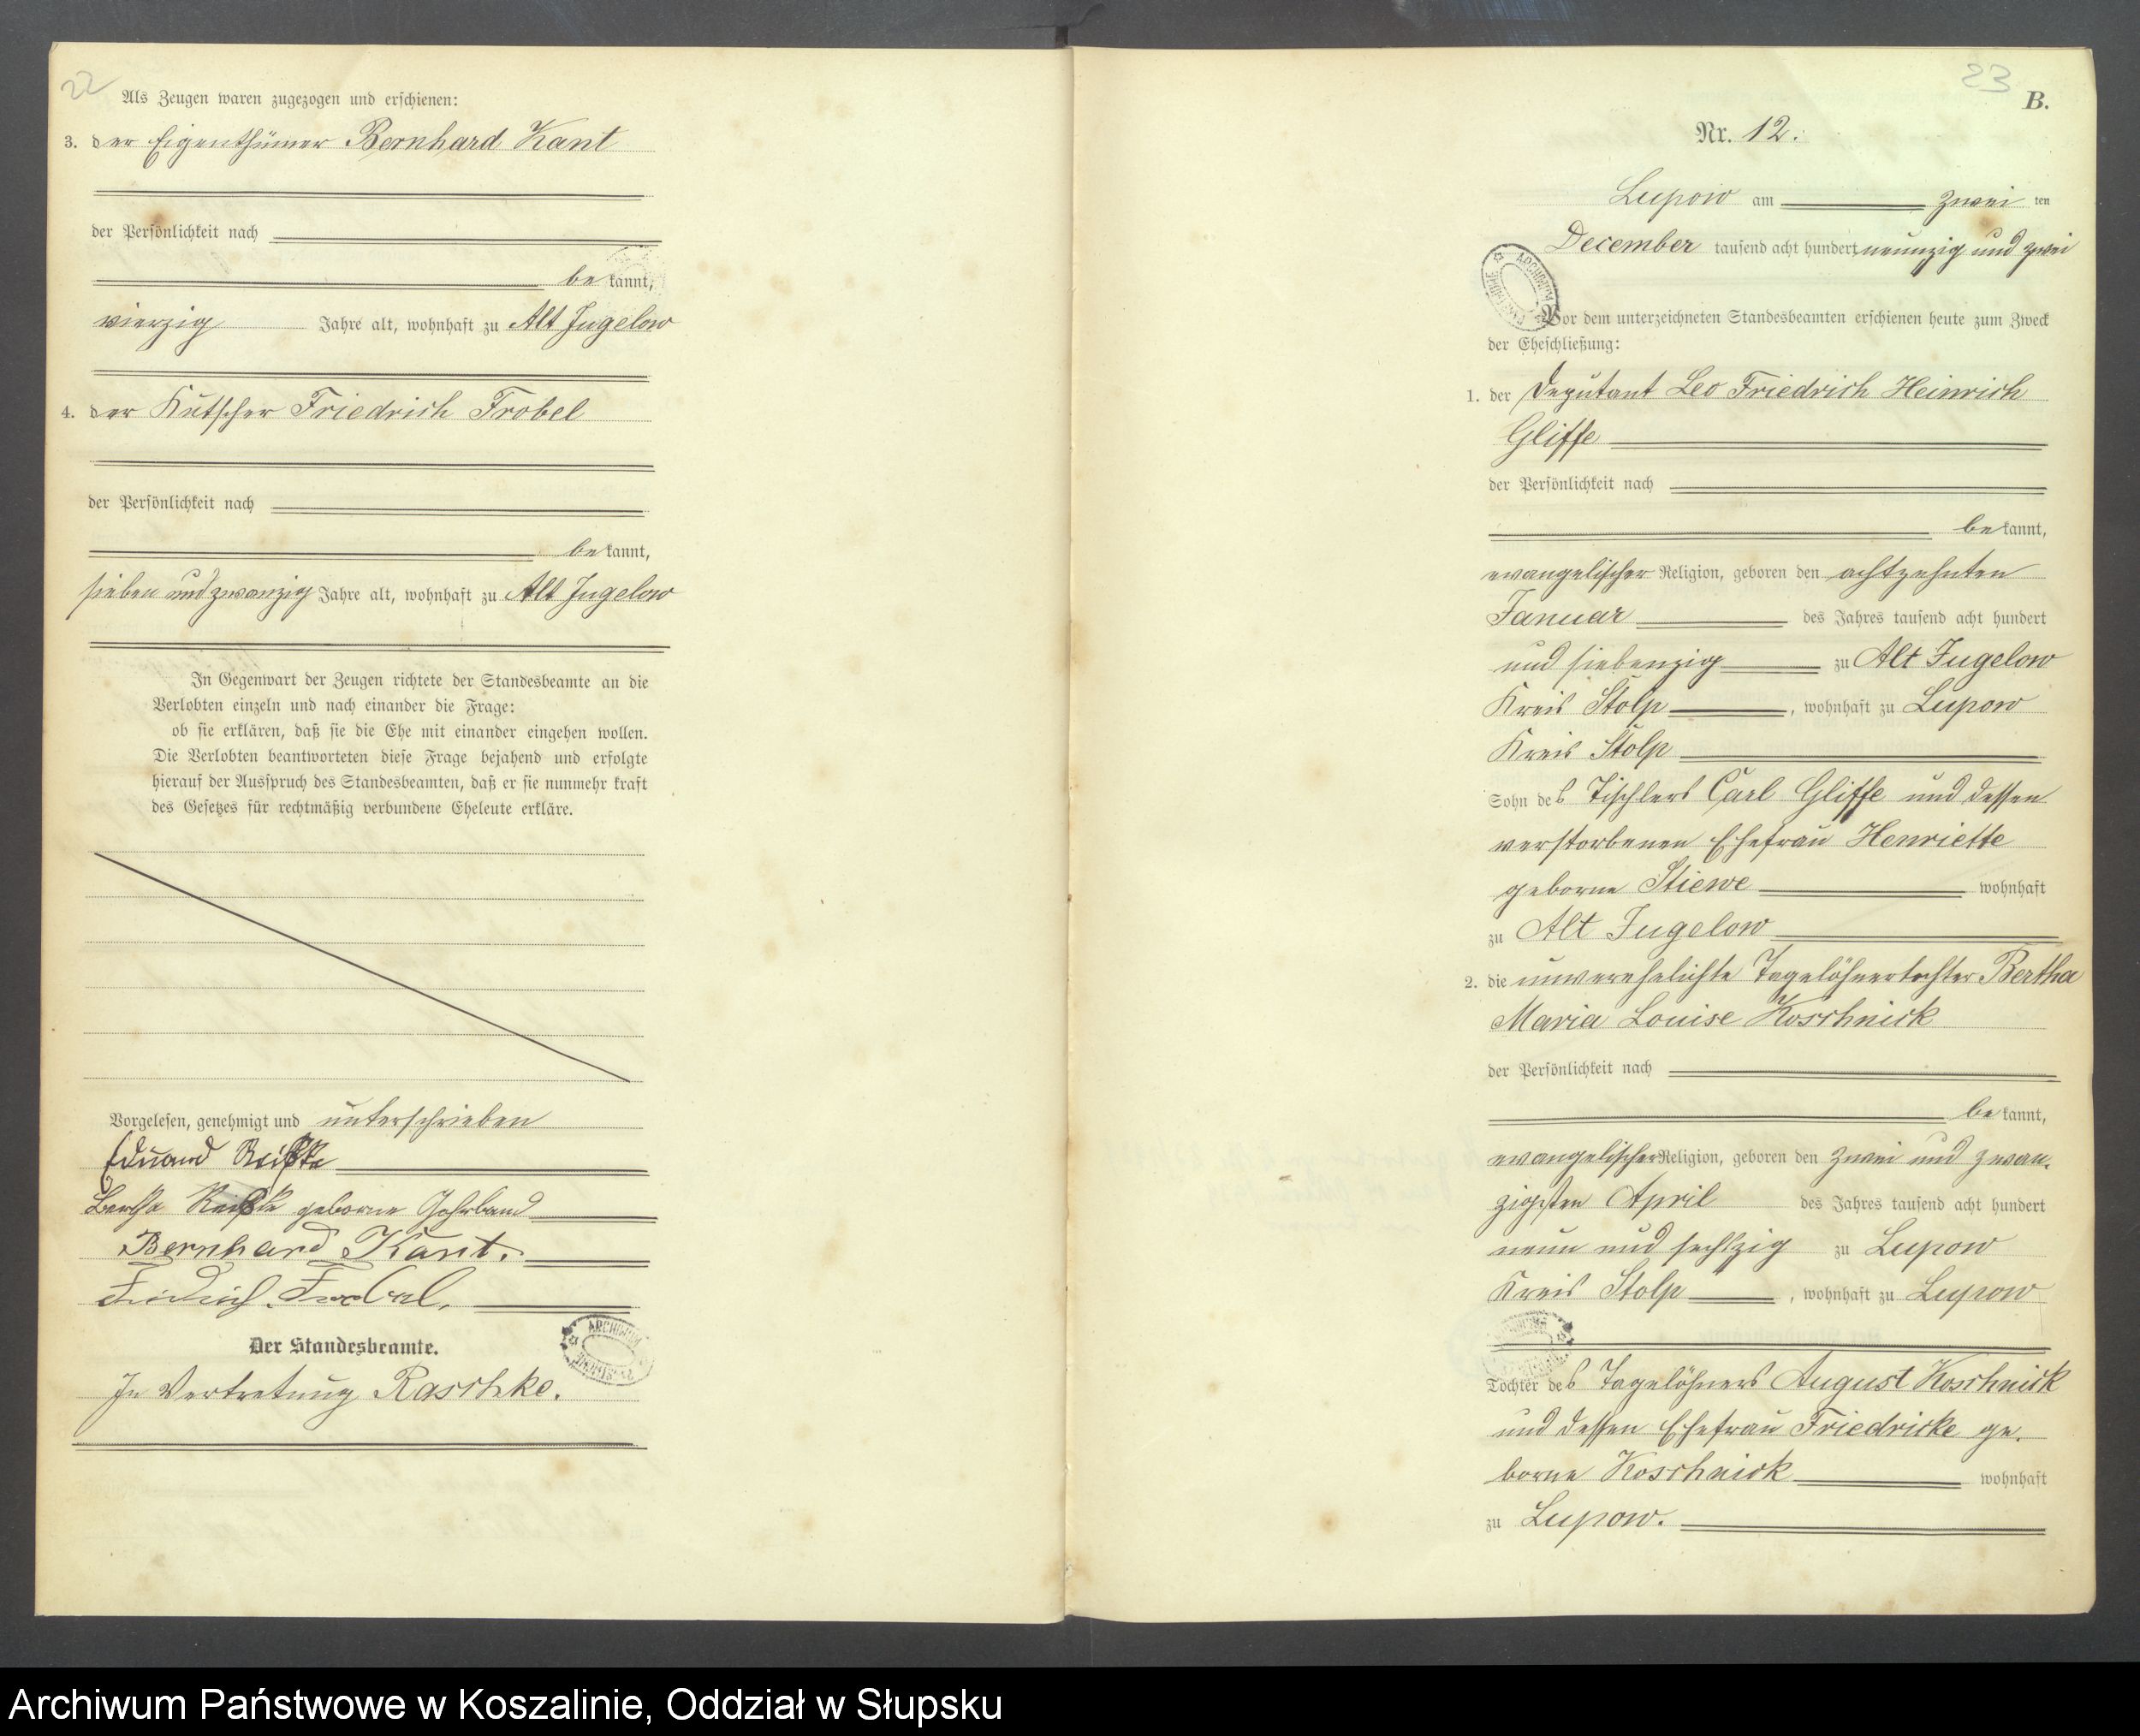 22
Als Zeugen waren zugezogen und erschienen:
3. der Eigenthümer Bernhard Kant
der Persönlichkeit nach
bekannt,
vierzig Jahre alt, wohnhaft zu Alt Jugelow
4. der Kutscher Friedrich Trobel
der Persönlichkeit nach
bekannt,
sieben und zwanzig Jahre alt, wohnhaft zu Alt Jugelow
In Gegenwart der Zeugen richtete der Standesbeamte an die
Verlobten einzeln und nach einander die Frage:
ob sie erklären, daß sie die Ehe mit einander eingehen wollen.
Die Verlobten beantworteten diese Frage bejahend und erfolgte
hierauf der Ausspruch des Standesbeamten, daß er sie nunmehr kraft
des Gesetzes für rechtmäßig verbundene Eheleute erkläre.
Vorgelesen, genehmigt und unterschrieben
Eduard
Bertha geborne
Bernhard Kant.
Fridrich
Der Standesbeamte.
In Vertretung Raschke.
23
B.
Nr. 12.
Lupow am zwei ten
December tausend acht hundert neunzig und zwei
Vor dem unterzeichneten Standesbeamten erschienen heute zum Zweck
der Eheschließung:
1. der Deputant Leo Friedrich Heinrich
Gliffe
der Persönlichkeit nach
bekannt,
evangelischer Religion, geboren den achtzehnten
Januar des Jahres tausend acht hundert
und siebenzig zu Alt Jugelow
Kreis Stolp, wohnhaft zu Lupow
Kreis Stolp
Sohn des Tischlers Carl Gliffe und dessen
verstorbenen Ehefrau Henriette
geborne Stiewe wohnhaft
zu Alt Jugelow
2. die unverehelichte Tagelöhnertochter Bertha
Maria Louise Koschnick
der Persönlichkeit nach
bekannt,
evangelischer Religion, geboren den zwei und zwan-
zigsten April des Jahres tausend acht hundert
neun und sechszig zu Lupow
Kreis Stolp, wohnhaft zu Lupow
Tochter des Tagelöhners August Koschnick
und dessen Ehefrau Friedricke ge-
borne Koschnick wohnhaft
zu Lupow.
Archiwum Państwowe w Koszalinie, Oddział w Słupsku